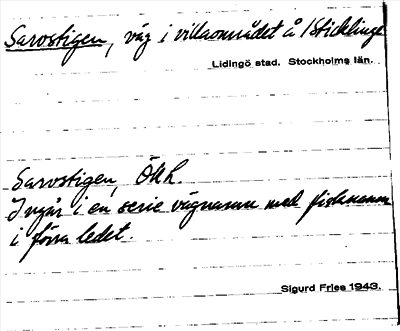 Sarostigen, väg i villaområdet å /Sticklinge
Lidingö stad. Stockholms län.
Sarostigen, Ökh.
Ingår i en serie vägnamn med fisknamn
i förra ledet.
Sigurd Fries 1943.